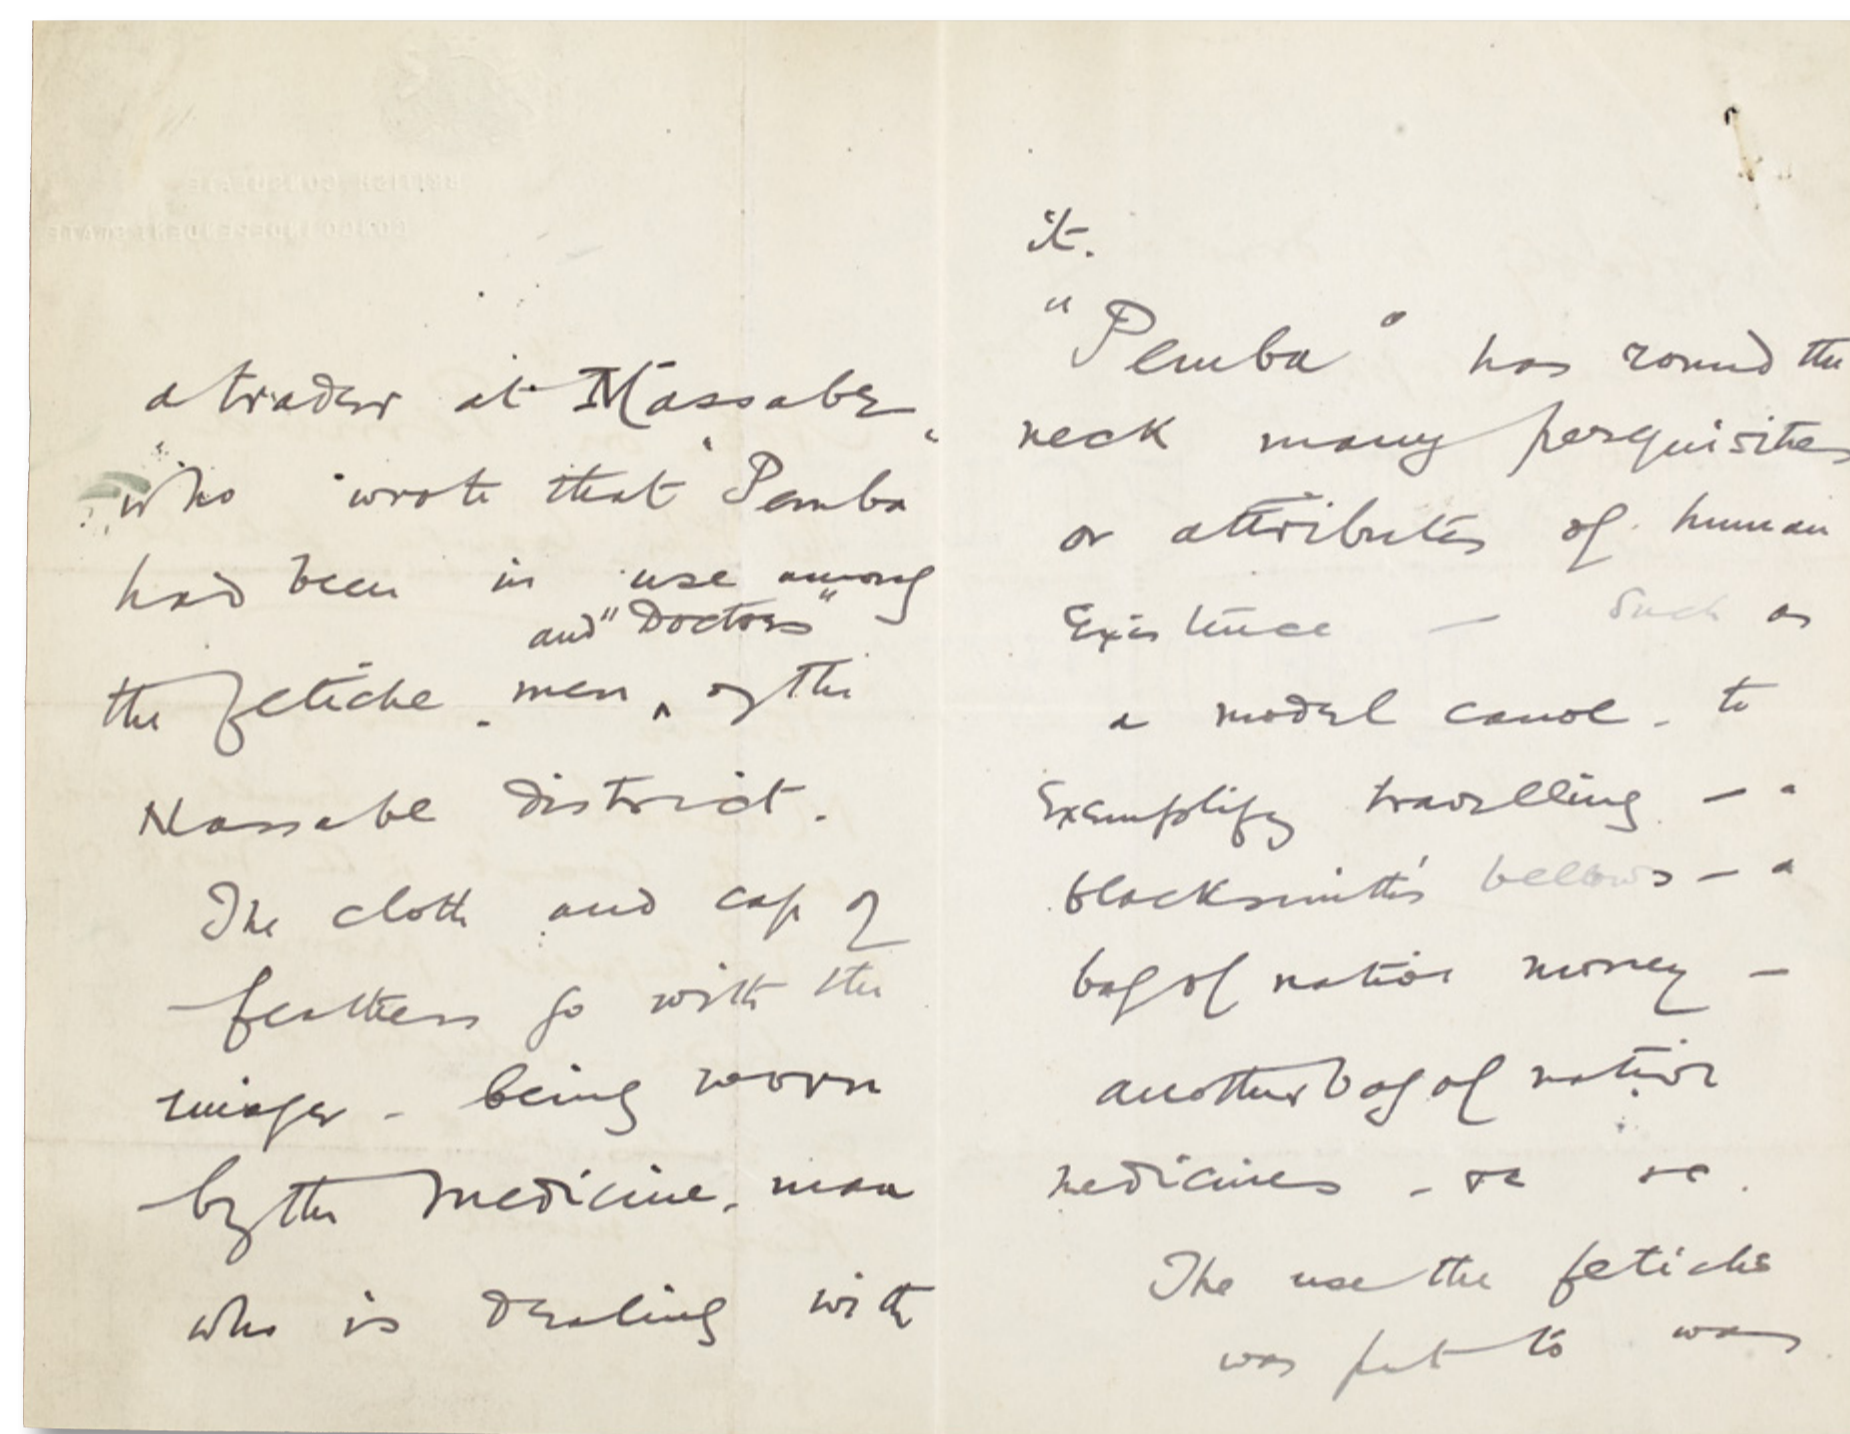 BRITISH CONSULATE
CONGO INDEPENDENT STATE
a trader at Massabe,
who wrote that "Pemba"
had been in use among
the fetiche - men ^ and "Doctors" of the
Massabe district.
The cloth and cap of
feathers go with the
image - being worn
by the Medicine-man
who is dealing with
it.
"Pemba" has round the
neck many perquisites
or attributes of human
existence — such as
a model canoe - to
exemplify travelling — a
blacksmith's bellows — a
bag of native money —
another bag of native
medicines - &c &c.
The use the fetiche
was put to was